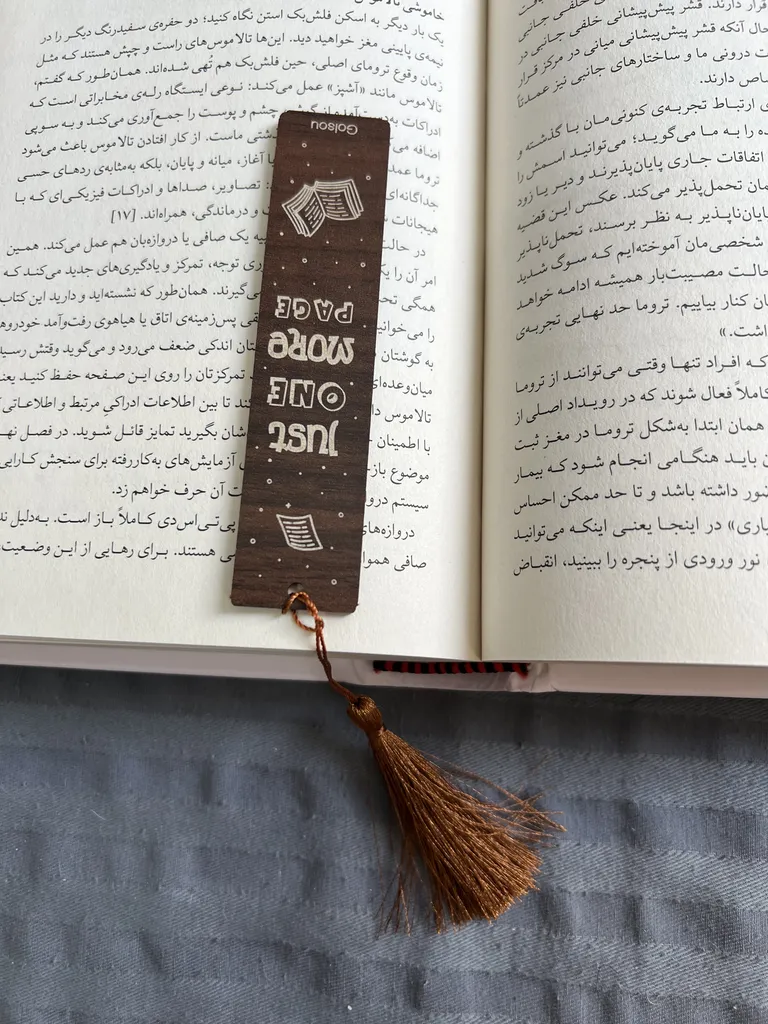 قرار دارند. قشر پیش‌پیشانی خلفی جانبی
حال آنکه قشر پیش‌پیشانی میانی در مرکز قرار
درونی ما و ساختارهای جانبی نیز عمدتاً
دارند.
ارتباط تجربه‌ی کنونی‌مان با گذشته و
را به ما می‌گوید؛ می‌توانید اسمش را
اتفاقات جاری پایان‌پذیرند و دیر یا زود
تحمل‌پذیر می‌کند. عکس این قضیه
به نظر برسند، تحمل‌ناپذیر
شخصی‌مان آموخته‌ایم که سوگ شدید
حالت مصیبت‌بار همیشه ادامه خواهد
کنار بیاییم. تروما حد نهایی تجربه‌ی
که افراد تنها وقتی می‌توانند از تروما
کاملاً فعال شوند که در رویداد اصلی از
همان ابتدا به‌شکل تروما در مغز ثبت
باید هنگامی انجام شود که بیمار
داشته باشد و تا حد ممکن احساس
در اینجا یعنی اینکه می‌توانید
نور ورودی از پنجره را ببینید، انقباض
یک بار دیگر به اسکن فلش‌بک استن نگاه کنید؛ دو حفره‌ی سفیدرنگ دیگر را در
نیمه‌ی پایینی مغز خواهید دید. این‌ها تالاموس‌های راست و چپش هستند که مثل
زمان وقوع ترومای اصلی، حین فلش‌بک هم تُهی شده‌اند. همان‌طور که گفتم،
تالاموس مانند «آشپز» عمل می‌کند: نوعی ایستگاه رله‌ی مخابراتی است که
ادراکات چشم و پوست را جمع‌آوری می‌کند و به سوپی
اضافه ماست. از کار افتادن تالاموس باعث می‌شود
تروما آغاز، میانه و پایان، بلکه به‌مثابه‌ی ردهای حسی
جداگانه‌ای تصاویر، صداها و ادراکات فیزیکی‌ای که با
هیجانات و درماندگی، همراه‌اند. [۱۷]
در یک صافی یا دروازه‌بان هم عمل می‌کند. همین
امر آن را توجه، تمرکز و یادگیری‌های جدید می‌کند که
همگی می‌گیرند. همان‌طور که نشسته‌اید و دارید این کتاب
را پس‌زمینه‌ی اتاق یا هیاهوی رفت‌وآمد
به گوشتان اندکی ضعف می‌رود و می‌گوید وقتش
تمرکزتان را روی این صفحه حفظ کنید
تالاموس تا بین اطلاعات ادراکی مرتبط و
با اطمینان بگیرید تمایز قائل شوید. در فصل
موضوع آزمایش‌های به‌کاررفته برای سنجش کارایی
سیستم آن حرف خواهم زد.
پی‌تی‌اس‌دی کاملاً باز است. به‌دلیل
صافی هستند. برای رهایی از این وضعیت
Just
ONE
more
PAGE
Golsou